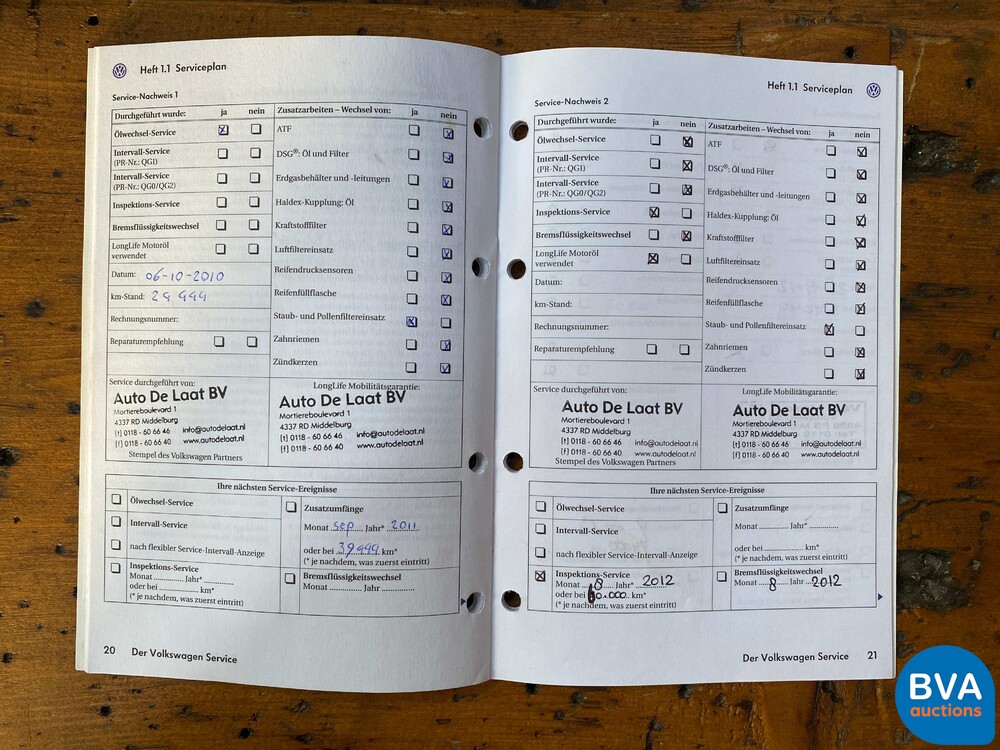 Heft 1.1 Serviceplan
Service-Nachweis 1
Durchgeführt wurde: ja nein
Ölwechsel-Service
Intervall-Service
(PR-Nr.: QG1)
Intervall-Service
(PR-Nr.: QG0/QG2)
Inspektions-Service
Bremsflüssigkeitswechsel
LongLife Motoröl
verwendet
Datum: 06-10-2010
km-Stand: 29 999
Rechnungsnummer:
Reparaturempfehlung
Zusatzarbeiten – Wechsel von: ja nein
ATF
DSG®: Öl und Filter
Erdgasbehälter und -leitungen
Haldex-Kupplung: Öl
Kraftstofffilter
Luftfiltereinsatz
Reifendrucksensoren
Reifenfüllflasche
Staub- und Pollenfiltereinsatz
Zahnriemen
Zündkerzen
Service durchgeführt von:
Auto De Laat BV
Mortiereboulevard 1
4337 RD Middelburg
[t] 0118 - 60 66 46 info@autodelaat.nl
[f] 0118 - 60 66 40 www.autodelaat.nl
Stempel des Volkswagen Partners
LongLife Mobilitätsgarantie:
Auto De Laat BV
Mortiereboulevard 1
4337 RD Middelburg
[t] 0118 - 60 66 46 info@autodelaat.nl
[f] 0118 - 60 66 40 www.autodelaat.nl
Ihre nächsten Service-Ereignisse
Ölwechsel-Service
Intervall-Service
nach flexibler Service-Intervall-Anzeige
Inspektions-Service
Monat ............ Jahr* ............
oder bei ............ km*
(* je nachdem, was zuerst eintritt)
Zusatzumfänge
Monat sep Jahr* 2011
oder bei 39999 km*
(* je nachdem, was zuerst eintritt)
Bremsflüssigkeitswechsel
Monat ............ Jahr ............
20 Der Volkswagen Service
Heft 1.1 Serviceplan
Service-Nachweis 2
Durchgeführt wurde: ja nein
Ölwechsel-Service
Intervall-Service
(PR-Nr.: QG1)
Intervall-Service
(PR-Nr.: QG0/QG2)
Inspektions-Service
Bremsflüssigkeitswechsel
LongLife Motoröl
verwendet
Datum:
km-Stand:
Rechnungsnummer:
Reparaturempfehlung
Zusatzarbeiten – Wechsel von: ja nein
ATF
DSG®: Öl und Filter
Erdgasbehälter und -leitungen
Haldex-Kupplung: Öl
Kraftstofffilter
Luftfiltereinsatz
Reifendrucksensoren
Reifenfüllflasche
Staub- und Pollenfiltereinsatz
Zahnriemen
Zündkerzen
Service durchgeführt von:
Auto De Laat BV
Mortiereboulevard 1
4337 RD Middelburg
[t] 0118 - 60 66 46 info@autodelaat.nl
[f] 0118 - 60 66 40 www.autodelaat.nl
Stempel des Volkswagen Partners
LongLife Mobilitätsgarantie:
Auto De Laat BV
Mortiereboulevard 1
4337 RD Middelburg
[t] 0118 - 60 66 46 info@autodelaat.nl
[f] 0118 - 60 66 40 www.autodelaat.nl
Ihre nächsten Service-Ereignisse
Ölwechsel-Service
Intervall-Service
nach flexibler Service-Intervall-Anzeige
Inspektions-Service
Monat 8 Jahr* 2012
oder bei 60.000 km*
(* je nachdem, was zuerst eintritt)
Zusatzumfänge
Monat ............ Jahr* ............
oder bei ............ km*
(* je nachdem, was zuerst eintritt)
Bremsflüssigkeitswechsel
Monat 8 Jahr 2012
Der Volkswagen Service 21
BVA
auctions